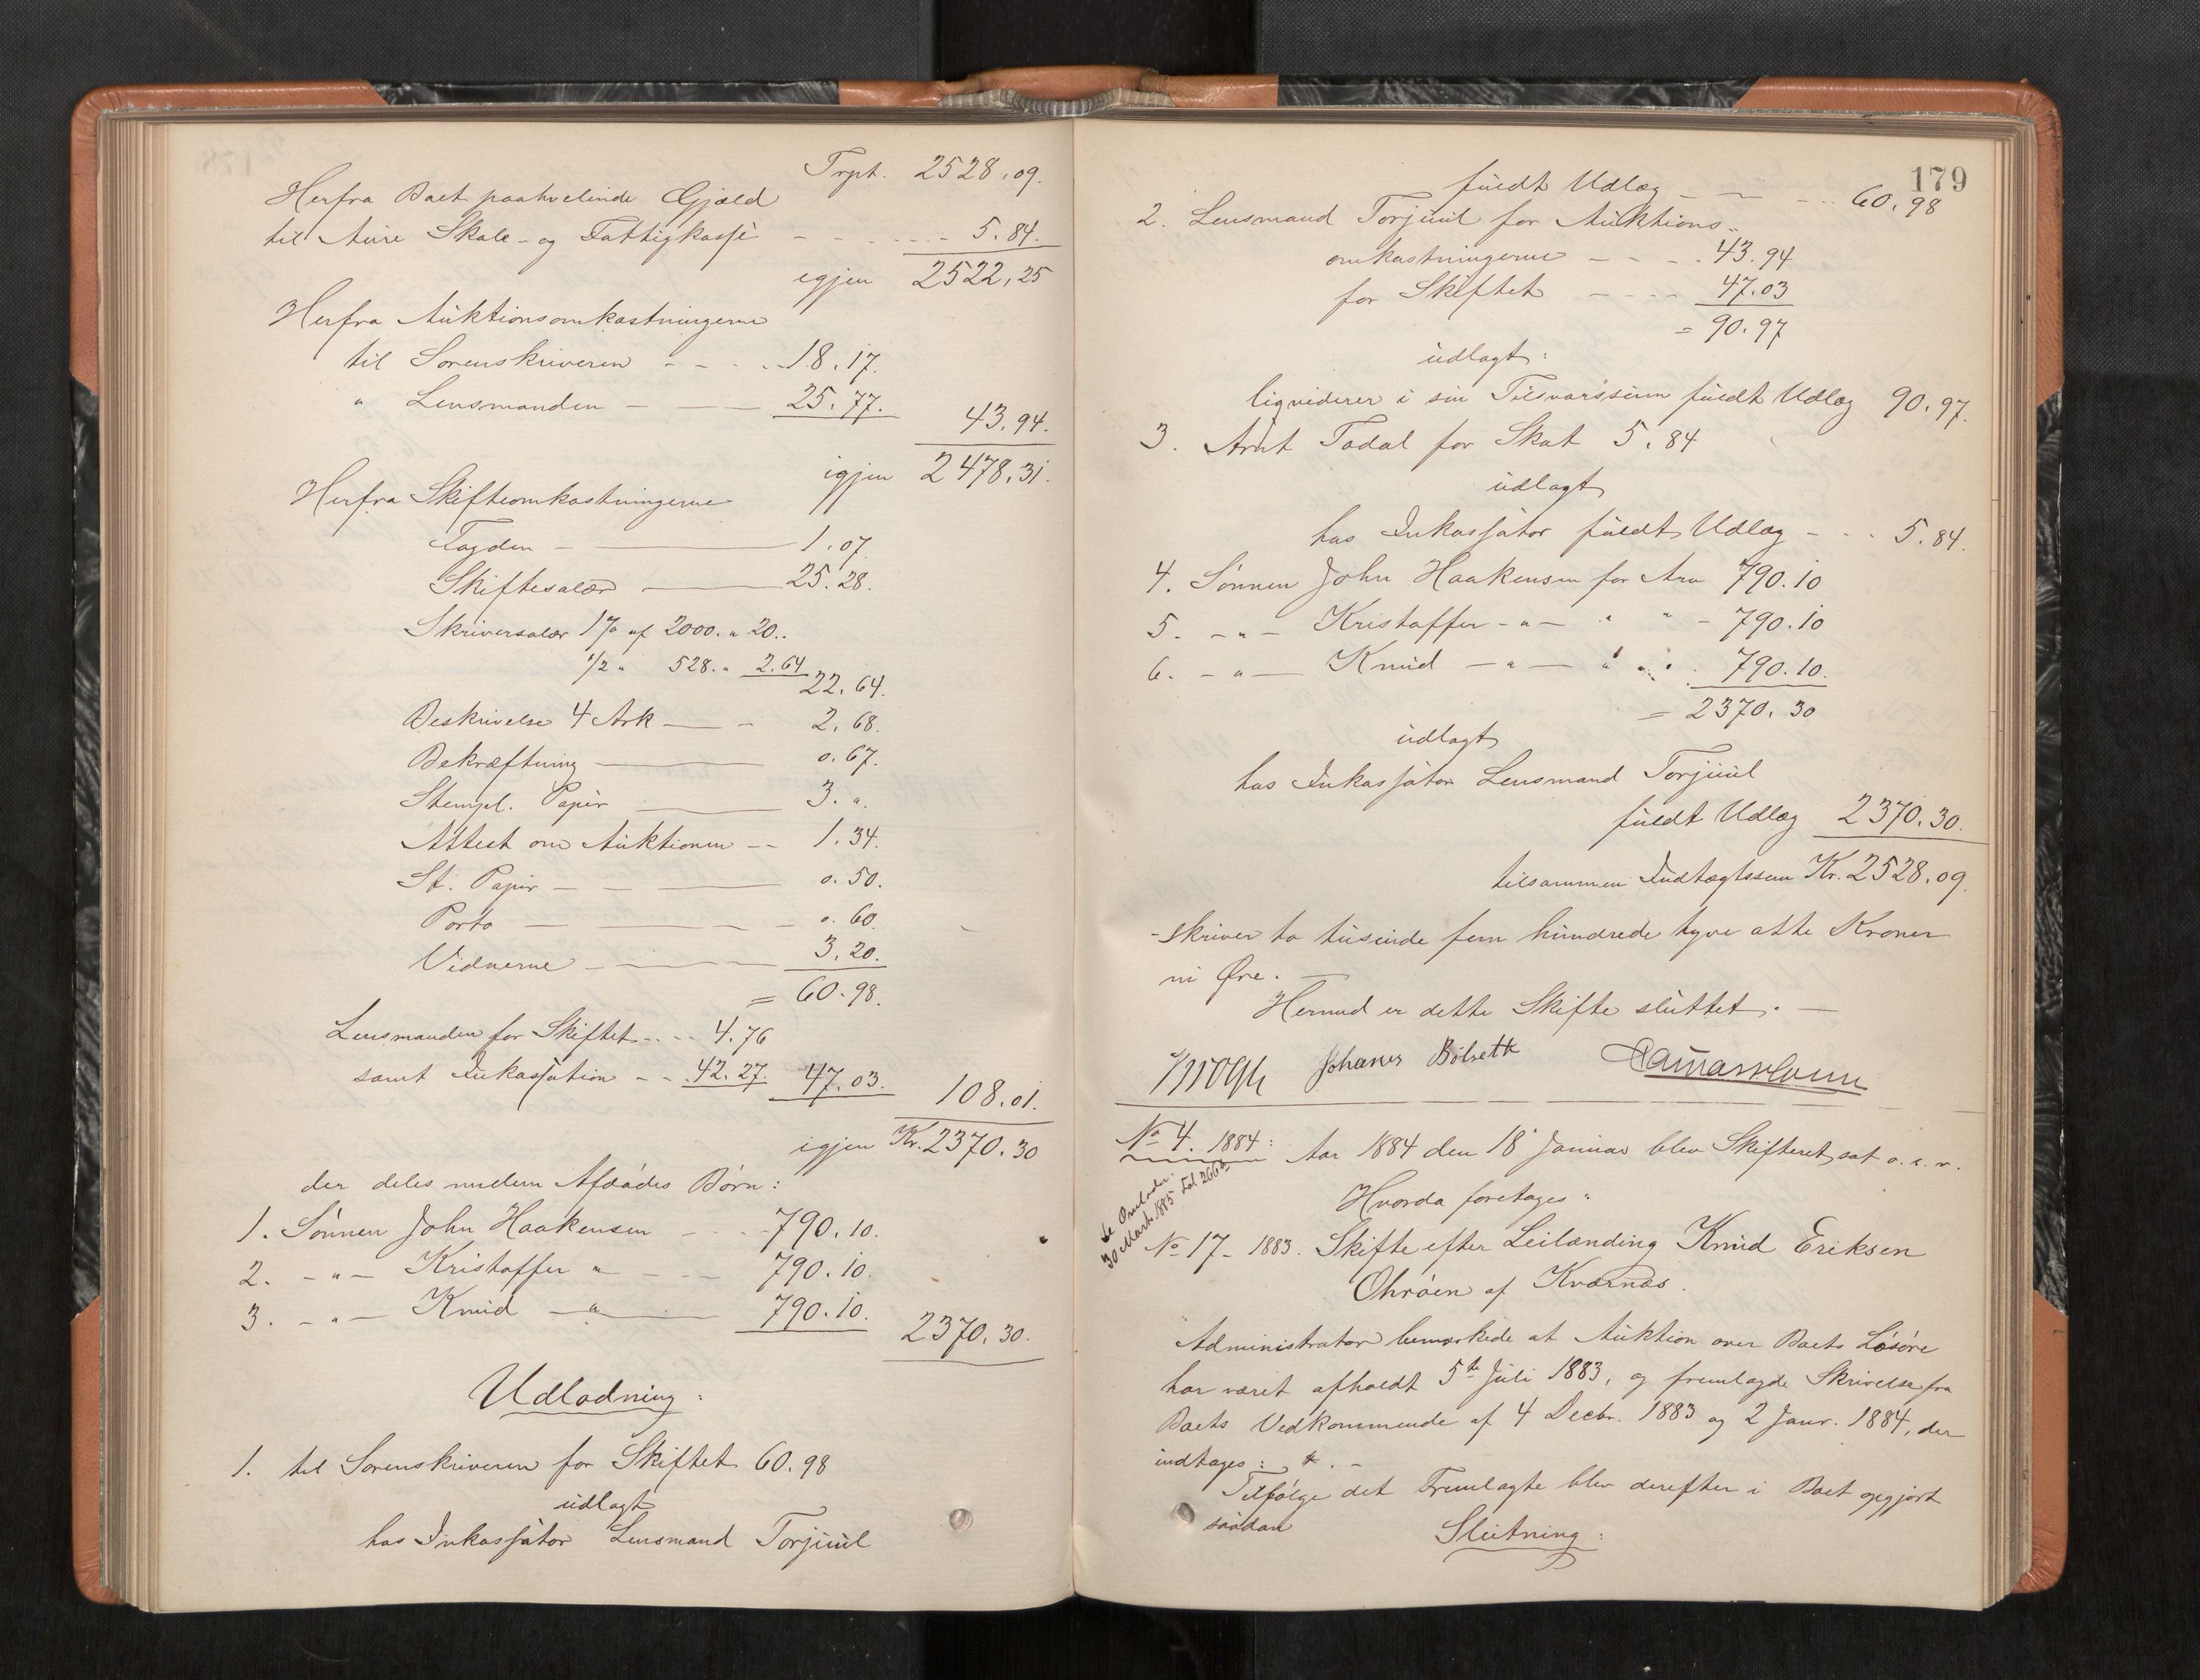 Trpt. 2528.09.
Herfra Boet paahvilende Gjæld
til Aure Skole- og Fattigkasse - - - - 5.84.
igjen 2522,25
Herfra Auktionsomkostningerne
til Sorenskriveren - - - - 18.17.
" Lensmanden - - 25.77. 43.94.
igjen 2478.31.
Herfra Skifteomkostningerne
Tagden - — 1.07.
Skiftesalær — 25.28.
Skriversalær 1 % af 2000. " 20..
1/2 " 528. " 2.64 22.64.
Beskrivelse 4 Ark — - 2.68.
Bekræftning — 0.67.
Stempl. Papir — 3. ".
Attest om Auktionen - - 1.34.
St. Papir - — 0.50.
Porto — - - 0.60.
Vidnerne - — 3.20.
= 60.98.
Lensmanden for Skiftet - - - 4.76
samt Inkassation - - 42.27. 47.03. 108.01.
igjen Kr. 2370.30
der deles mellem Afdødes Børn:
1. Sønnen John Haakensen - - - 790.10.
2. - " - Kristoffer " - - - 790.10.
3. - " - Knud — " — 790.10. 2370.30.
Udlodning:
1. til Sorenskriveren for Skiftet 60.98
udlagt
hos Inkassator Lensmand Torjuul
179
fuldt Udlæg - — - - - 60.98
2. Lensmand Torjuul for Auktions-
omkostningerne - - - - 43.94
for Skiftet - - - - 47.03
= 90.97
udlagt:
liqviderer i sin Tilsvarssum fuldt Udlæg 90.97.
3. Arnt Todal for Skat 5.84
udlagt
hos Inkassator fuldt Udlæg - - - 5.84.
4. Sønnen John Haakensen for Arv 790.10
5. - " - Kristoffer - " - " " - 790.10
6. - " — Knud — " — " " . 790.10.
= 2370.30
udlagt
hos Inkassator Lensmand Torjuul
fuldt Udlæg 2370.30.
tilsammen Indtægtssum Kr. 2528.09.
- skriver to tusinde fem hundrede tyve otte Kroner
ni Øre. —
Hermed er dette Skifte sluttet. —
Krogh Johanes Bølsetth
No 4. 1884: Aar 1884 den 18 Januar blev Skifteret sat o. s. v.
Hvorda foretages:
30 Marts 1885 Fol 266
No 17 - 1883. Skifte efter Leilænding Knud Eriksen
Ohrøen af Kværnæs.
Administrator bemærkede at Auktion over Boets Løsøre
har været afholdt 5te Juli 1883, og fremlagde Skrivelse fra
Boets Vedkommende af 4 Decbr. 1883 og 2 Janr. 1884, der
indtages: * . -
Tilfølge det Fremlagte blev derefter i Boet opgjort
saadan
Slutning: